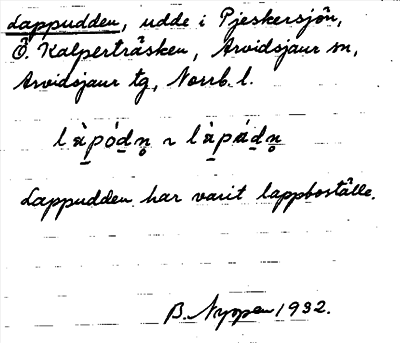 Lappudden, udde i Pjeskersjön,
Ö. Kalperträsken, Arvidsjaur sn,
Arvidsjaur tg, Norrb. l.
làpódn̥ ~ làpádn̥
Lappudden har varit lappboställe.
B. Nyman 1932.